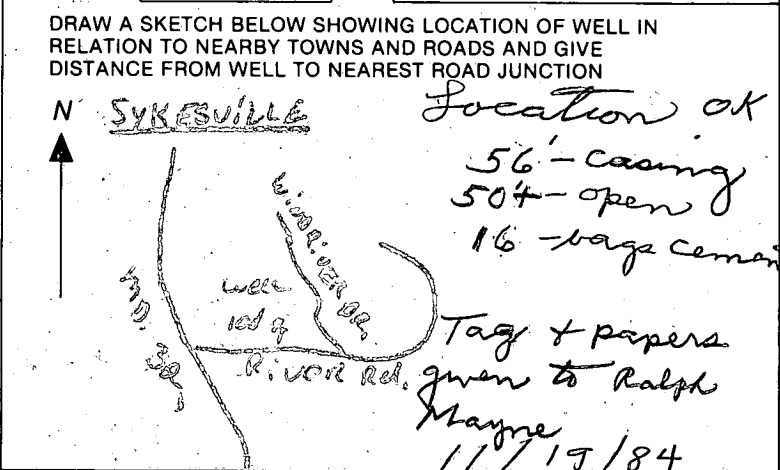 DRAW A SKETCH BELOW SHOWING LOCATION OF WELL IN
RELATION TO NEARBY TOWNS AND ROADS AND GIVE
DISTANCE FROM WELL TO NEAREST ROAD JUNCTION
N
SYKESVILLE
Location OK
56' - Casing
50'+ - open
16 - bags cemen
WINDRIVER DR.
well
MD.
RIVER Rd.
Tag + papers
given to Ralph
Mayne
11/19/84